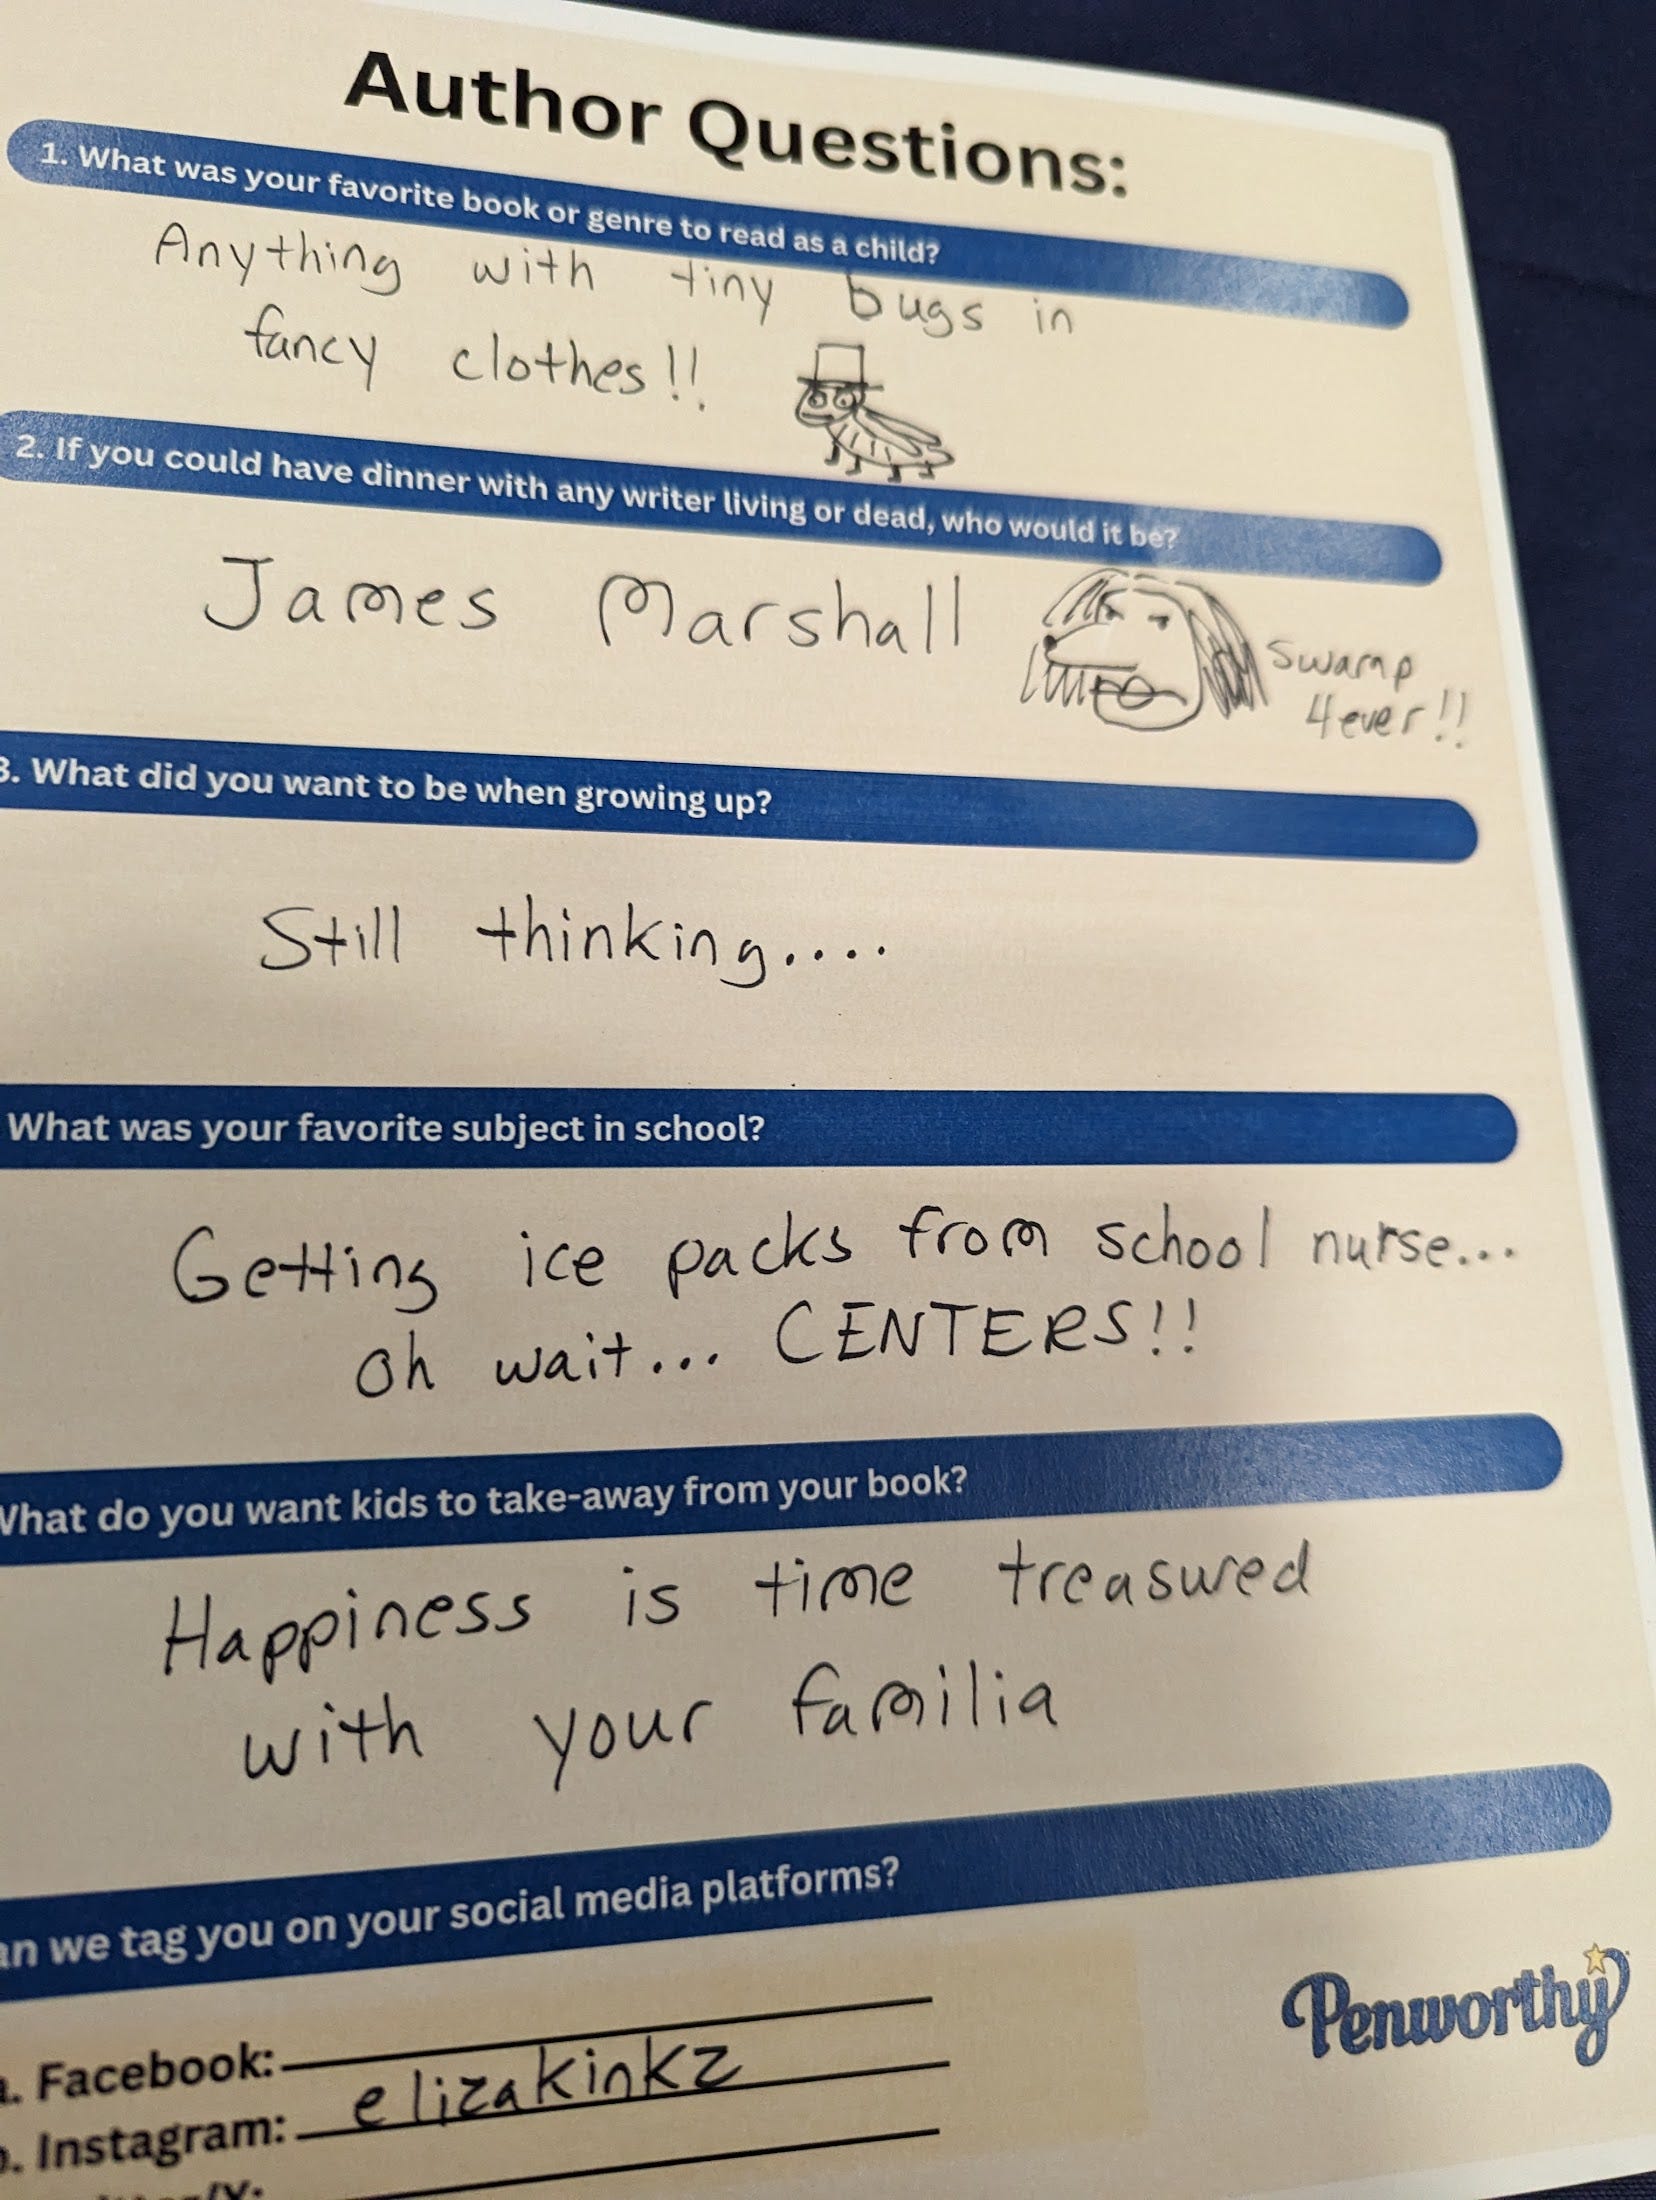 Author Questions:
1. What was your favorite book or genre to read as a child?
Anything with tiny bugs in
fancy clothes!!
2. If you could have dinner with any writer living or dead, who would it be?
James Marshall
Swamp
4ever!!
3. What did you want to be when growing up?
Still thinking....
What was your favorite subject in school?
Getting ice packs from school nurse...
Oh wait... CENTERS!!
What do you want kids to take-away from your book?
Happiness is time treasured
with your familia
an we tag you on your social media platforms?
Penworthy
. Facebook:
. Instagram: elizakinkz